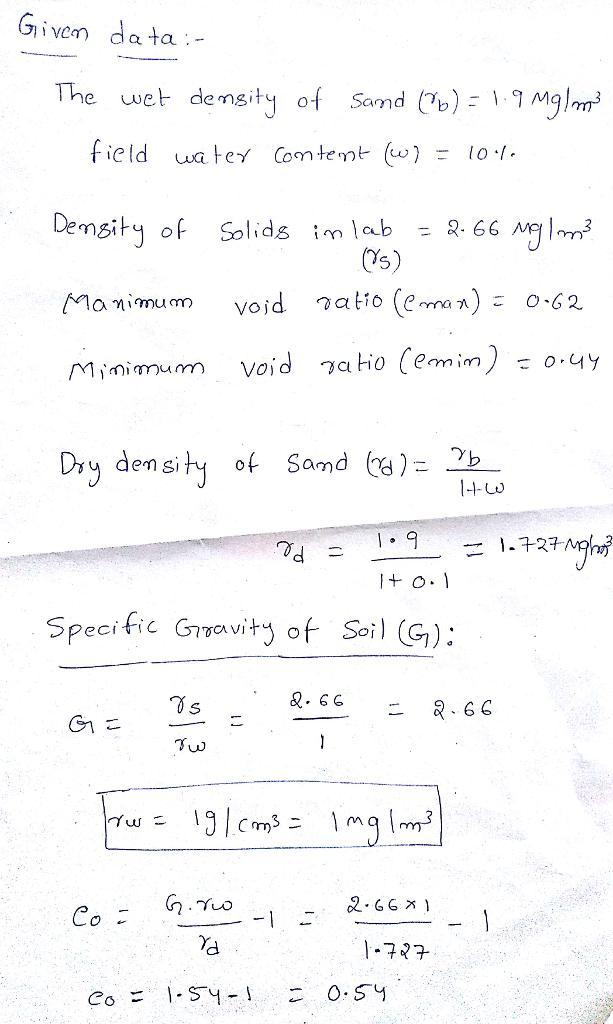 Given data :-
The wet density of sand (γb) = 1.9 Mg/m³
field water content (w) = 10%.
Density of Solids in lab = 2.66 Mg/m³
(γs)
Maximum void ratio (emax) = 0.62
Minimum void ratio (emin) = 0.44
Dry density of Sand (γd) = γb / 1+w
γd = 1.9 / 1+0.1 = 1.727 Mg/m³
Specific Gravity of Soil (G) :
G = γs / γw = 2.66 / 1 = 2.66
γw = 1g/cm³ = 1mg/m³
eo = G.γw / γd -1 = 2.66×1 / 1.727 - 1
eo = 1.54-1 = 0.54